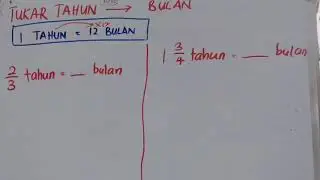 TUKAR TAHUN → BULAN
1 TAHUN = 12 BULAN
2/3 tahun = __ bulan
1 3/4 tahun = __ bulan